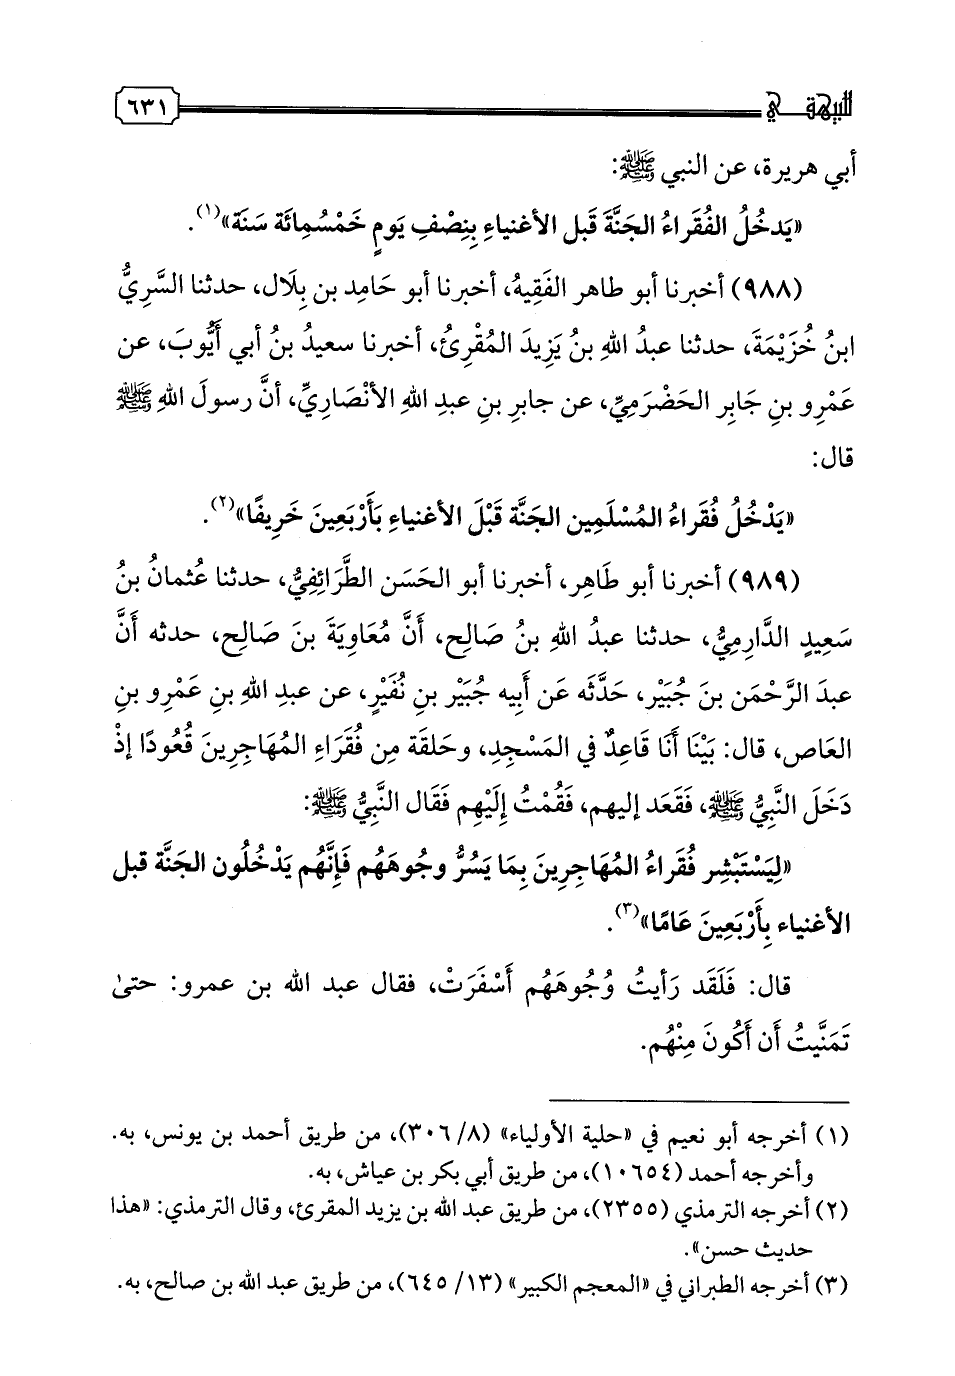 للبيهقي
٦٣١
أبي هريرة، عن النبي ﷺ:
«يَدخُلُ الفُقَراءُ الجَنَّةَ قَبل الأغنياءِ بِنِصْفِ يَومٍ خَمْسُمِائَة سَنَة»(١).
(٩٨٨) أخبرنا أبو طاهر الفَقِيهُ، أخبرنا أبو حَامِد بن بِلَال، حدثنا السَّرِيُّ
ابنُ خُزَيْمَةَ، حدثنا عبدُ اللهِ بنُ يَزِيدَ المُقْرِئُ، أخبرنا سعيدُ بنُ أبي أَيُّوبَ، عن
عَمْرِو بنِ جَابِر الحَضْرَمِيِّ، عن جابرِ بنِ عبدِ اللهِ الأنْصَارِيِّ، أنَّ رسولَ اللهِ ﷺ
قال:
«يَدْخُلُ فُقَراءُ المُسْلَمِين الجَنَّة قَبْلَ الأغنياءِ بَأَرْبَعِينَ خَرِيفًا»(٢).
(٩٨٩) أخبرنا أبو طَاهِر، أخبرنا أبو الحَسَن الطَّرَائِفِيُّ، حدثنا عُثمانُ بنُ
سَعِيدٍ الدَّارِمِيُّ، حدثنا عبدُ اللهِ بنُ صَالِح، أَنَّ مُعَاوِيَةَ بنَ صَالِح، حدثه أَنَّ
عبدَ الرَّحْمَن بنَ جُبَيْر، حَدَّثَه عَن أَبِيه جُبَيْر بنِ نُفَيْرٍ، عن عبدِ اللهِ بنِ عَمْرِو بنِ
العَاص، قال: بَيْنَا أَنَا قَاعِدٌ في المَسْجِدِ، وحَلقَة مِن فُقَرَاءِ المُهَاجِرِينَ قُعُودًا إذْ
دَخَلَ النَّبِيُّ ﷺ، فَقَعَد إليهم، فَقُمْتُ إِلَيْهِم فَقَال النَّبِيُّ ﷺ:
«لِيَسْتَبْشِر فُقَراءُ المُهَاجِرِينَ بِمَا يَسُرُّ وجُوهَهُم فَإِنَّهُم يَدْخُلُون الجَنَّة قبل
الأغنياء بِأَرْبَعِينَ عَامًا»(٣).
قال: فَلَقَد رَأيتُ وُجُوهَهُم أَسْفَرَتْ، فقال عبد الله بن عمرو: حتىٰ
تَمَنَّيتُ أن أَكُونَ مِنْهُم.
(١) أخرجه أبو نعيم في «حلية الأولياء» (٨/ ٣٠٦)، من طريق أحمد بن يونس، به.
وأخرجه أحمد (١٠٦٥٤)، من طريق أبي بكر بن عياش، به.
(٢) أخرجه الترمذي (٢٣٥٥)، من طريق عبد الله بن يزيد المقرئ، وقال الترمذي: «هذا
حديث حسن».
(٣) أخرجه الطبراني في «المعجم الكبير» (١٣/ ٦٤٥)، من طريق عبد الله بن صالح، به.